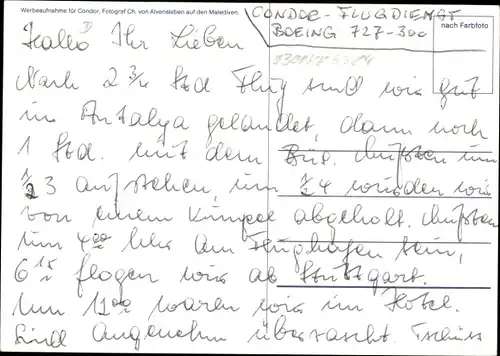 Werbeaufnahme für Condor, Fotograf Ch. von Alvensleben auf den Malediven.
CONDOR-FLUGDIENST
BOEING 727-300
nach Farbfoto
Hallo Ihr Lieben
Nach 2 3/4 Std Flug sind wir gut
in Antalya gelandet, dann noch
1 Std. mit dem Bus. Mußten um
1/2 3 aufstehen um 1/2 4 wurden wir
von einem Kumpel abgeholt. Mußten
um 4 00 Uhr am Flughafen sein,
6 15 flogen wir ab Stuttgart.
Um 11 00 waren wir im Hotel.
Sind angenehm überrascht. Tschüss